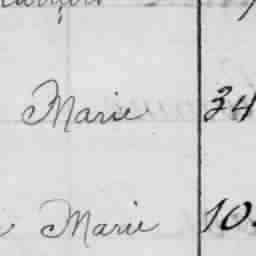 Marie 34
Marie 10